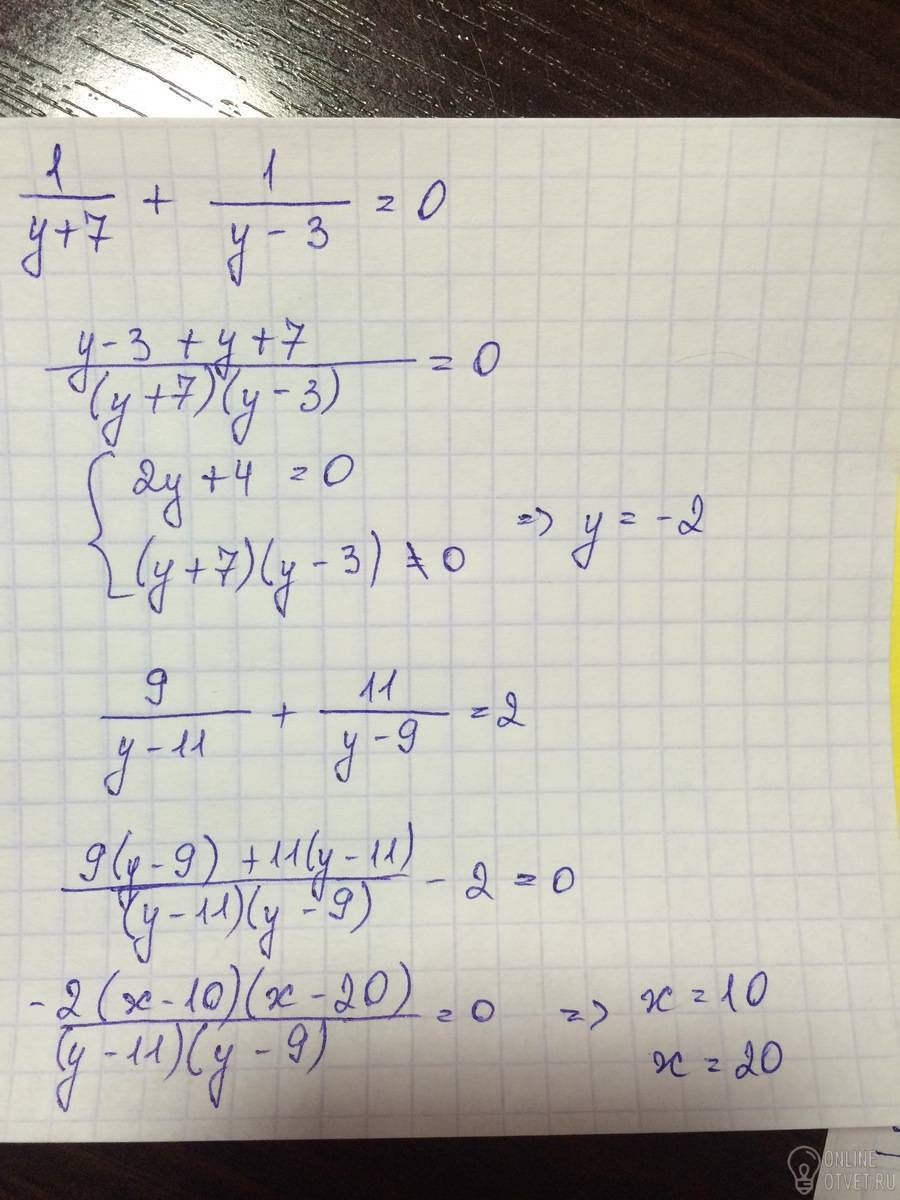 1/(y+7) + 1/(y-3) = 0
(y-3+y+7)/((y+7)(y-3)) = 0
{ 2y+4 = 0
(y+7)(y-3) ≠ 0 => y = -2
9/(y-11) + 11/(y-9) = 2
(9(y-9)+11(y-11))/((y-11)(y-9)) - 2 = 0
(-2(x-10)(x-20))/((y-11)(y-9)) = 0 => x = 10
x = 20
ONLINE
OTVET.RU